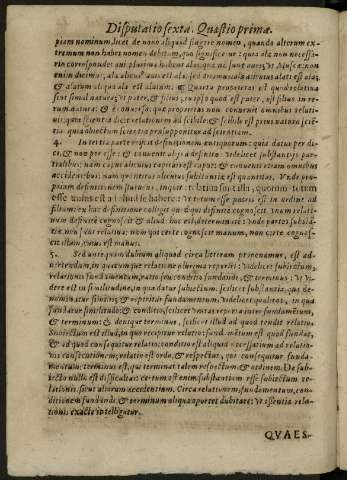 Disputatio sexta. Quæstio primæ.
piam nominum, licet de nouo aliquid fingere nomen, quando alterum ex-
tremum non habet nomen debitum, quo significetur: quia alæ non necessa-
rio correspondet qui pluries habent alas, quæ nõ sunt aues, vt Muscæ: non
enim dicimus, ala alicuius aui est ala, sed
& alatum aliqua ala est alatum. ¶ Quarta proprietas est quod relatiua
sint simul natura; vt pater, & filius,
natura: & è conuerso: quæ proprietas non conuenit omnibus relati-
uis; quia scientia dicit relationem ad scibile; & scibile est prius natura scien-
tia quia obiectum scientiæ præsupponitur ad scientiam.
4. In tertia parte reijcit definitionem antiquorum: quia datur per di-
ci, & non per esse: & conuenit alijs à definito: videlicet substantijs par-
tialibus; nam caput alicuius capitati est caput: & conuenit etiam quibusdam
accidentibus; nam quantitas alicuius substantiæ est quantitas. Vnde pro-
piam definitionem statuens, inquit: relatiua sunt illa, quorum totum
esse quinsest ad aliud se habere: vt totum esse patris est in ordine ad
filium; ex hac definitione colligit quod qui definite cognoscit vnum relati-
uorum definite cognoscit & aliud: hoc est, determinatè: vnde partes substã-
tiæ, non sunt relatiua; nam qui certè cognoscit manum, non certè cognos-
cit illum, cuius est manus.
5. Sed ante quam dubium aliquod circa litteram proponamus, est ad-
uertendum, in quacumque relatione plura reperiri: videlicet subiectum,
relatiuus fundamentum, ratio seu conditio fundandi, & terminus: vt vi-
dere est in similitudine, in qua datur subiectum, scilicet substantia, quæ de-
nominatur similis; & reperitur fundamentum, videlicet qualitas, in qua
fundatur similitudo; & conditio, scilicet vnitas reperta inter fundamentum,
& terminum: & denique terminus, scilicet illud ad quod tendit relatio.
Subiectum est illud, in quo recipitur relatio: fundamentum est quod fundat,
& ad quod consequitur relatio: conditio est aliquid necessarium ad relatio-
nis consecutionem; relatio est ordo, & respectus, qui consequitur funda-
mentum; terminus est, qui terminat talem respectum, & ordinem. De sub-
iecto nulla est difficultas: certum est enim substantiam esse subiectum re-
lationis, sicut aliorum accidentium. Circa relationem, fundamentum, con-
ditionem fundandi & terminum aliqua oportet dubitare: vt essentia rela-
tionis exactè intelligatur.
QVAES-